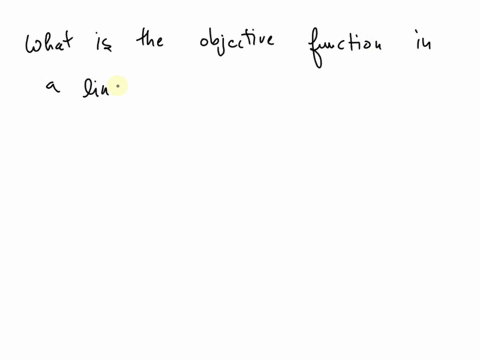 What is the objective function in
a lin